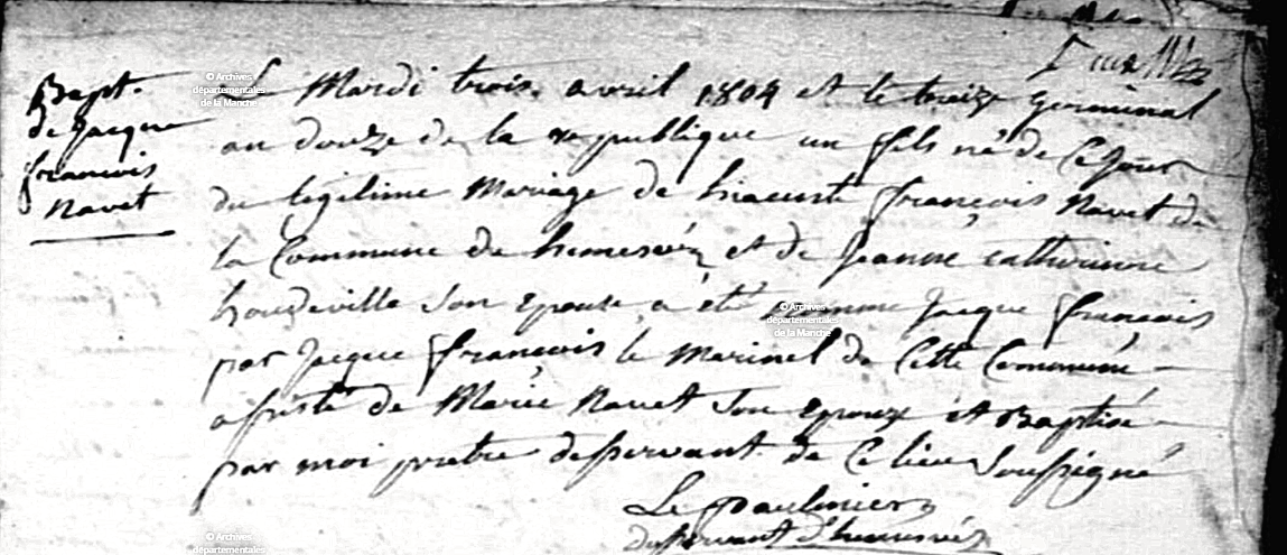 Bapt.
de jacque
francois
navet
Le Mardi trois avril 1804 et le treize germinal
an douze de la republique un fils né de ce jour
du legitime Mariage de hiacinte françois Navet de
la Commune de hemevéz et de jeanne catherinne
houdeville son epouse a eté nommé jacque francois
par jacque francois le marinel de Cette Commune
assisté de Marie Navet son epouse et Baptisé
par moi pretre desservant de ce lieu soussigné
Le Paulmier
desservant d'hemevéz
© Archives
départementales
de la Manche
© Archives
départementales
de la Manche
© Archives
départementales